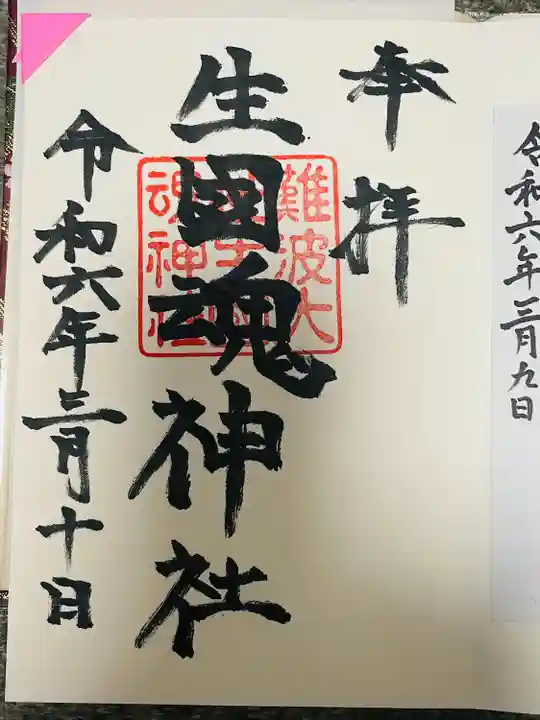 令和六年三月九日
奉拝
難波大
魂神社
生國魂神社
令和六年三月十日